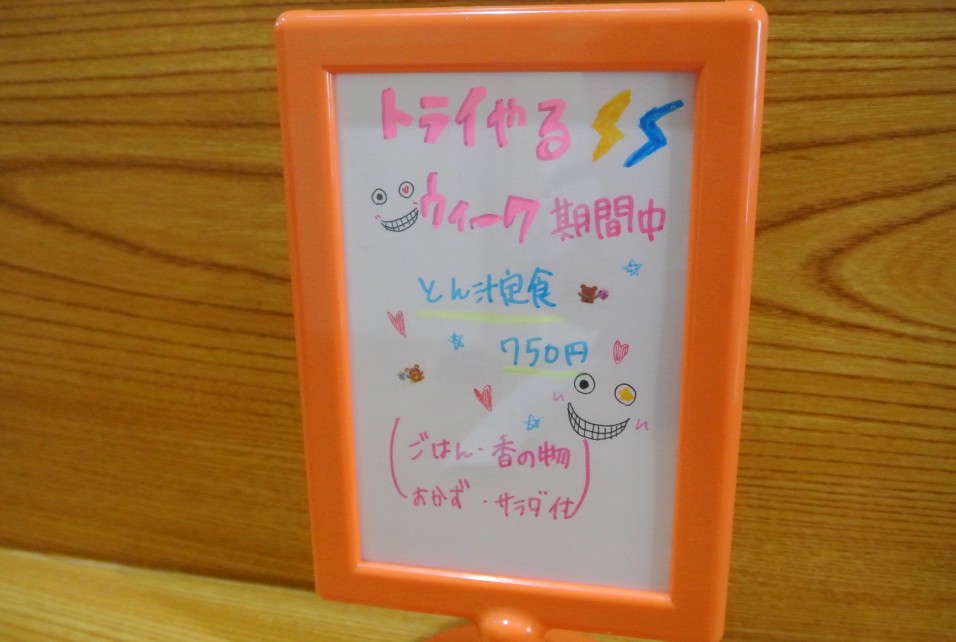 トライやる
ウィーク 期間中
とん汁定食
750円
(ごはん・香の物
おかず・サラダ付)